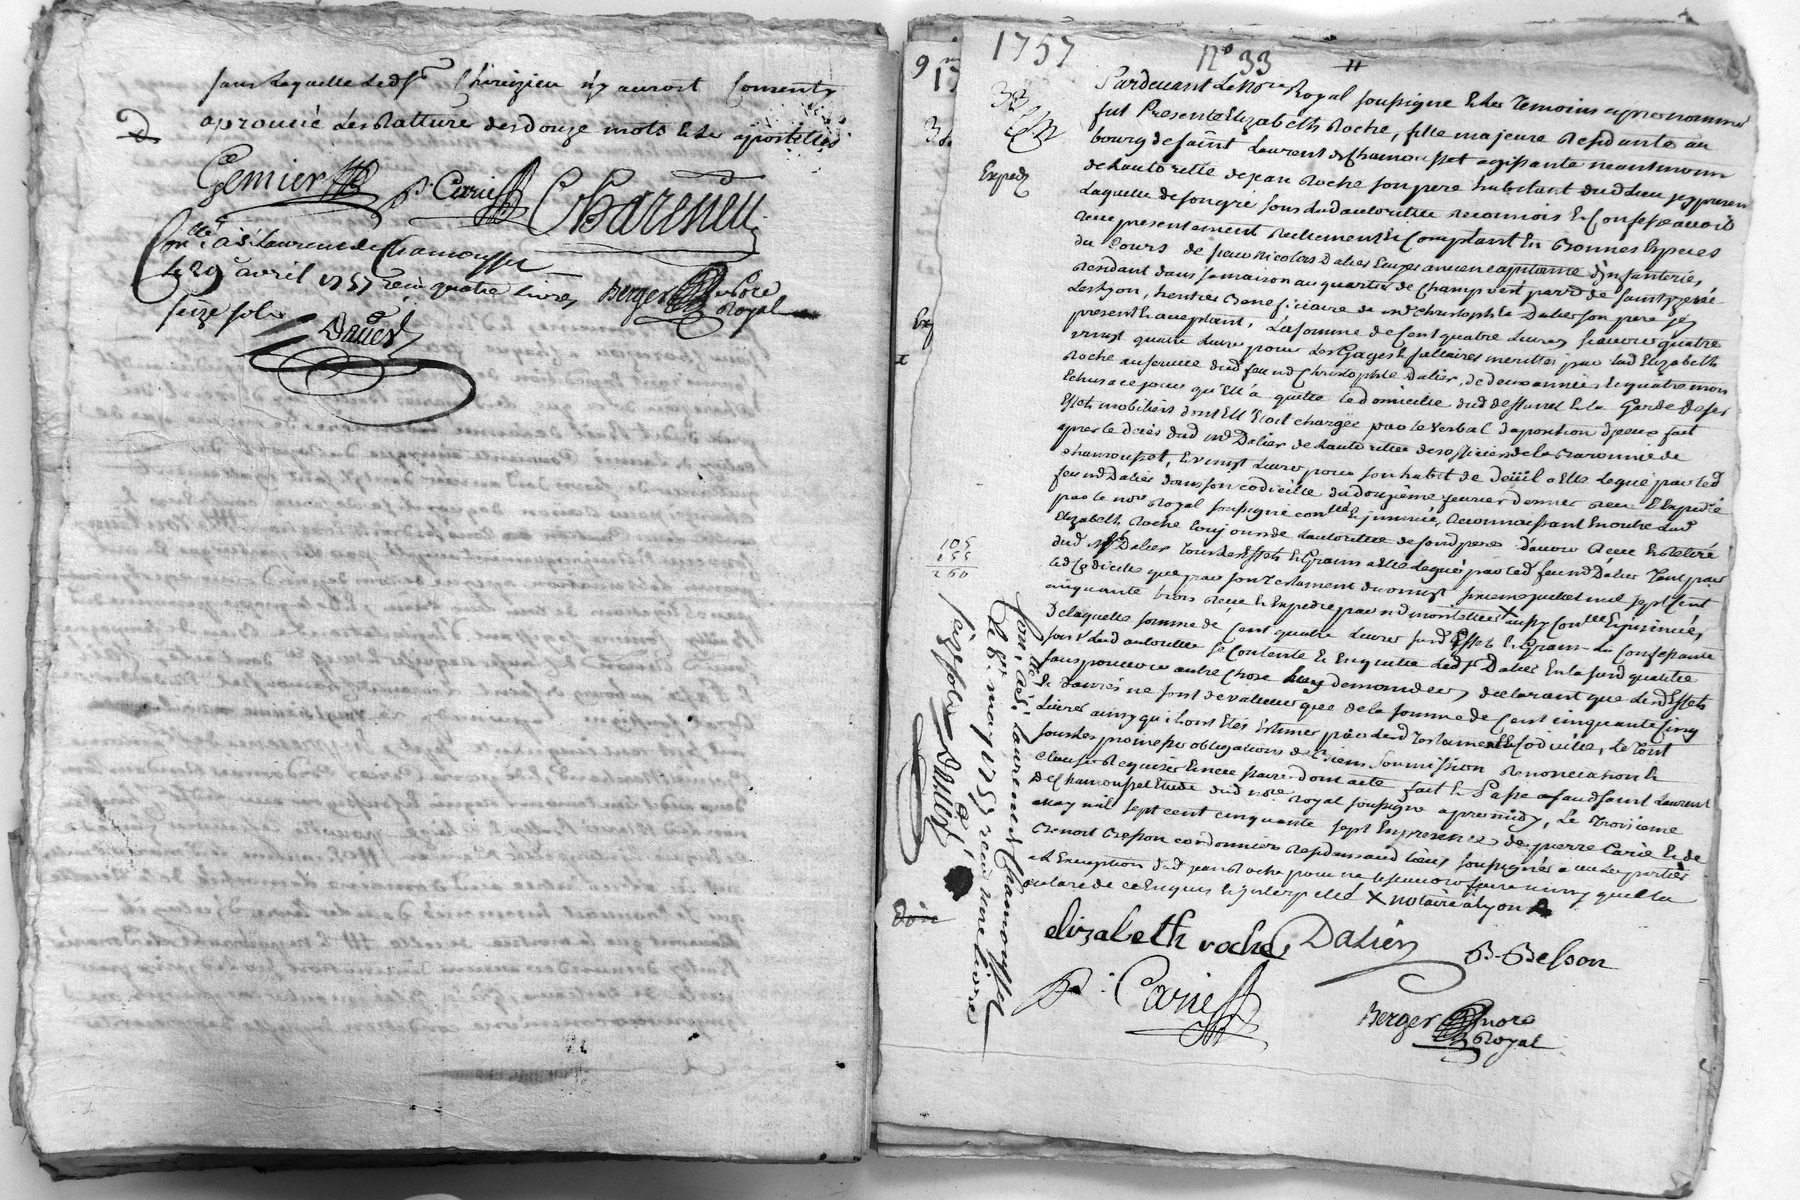 sans laquelle led. sr. Chirizieu n'y auroit consenty
aprouvé les rattures des douze mots et les apostilles
Gemier
P. Carie
Chareneu
Con.llé à St Laurent de Chamousset
le 29 avril 1757 reçu quatre livres
seize sols
Berger no.re
Royal
Daved
1757
n.o 33
33
Expedz
Pardevant le no.re Royal soussigné et les temoins apres nommés
fut presente Elizabeth Roche, fille majeure residante au
bourg de saint Laurent de Chamousset agissante neantmoins
de l'autoritée de jean Roche son pere habitant dud. lieu jcy present
laquelle de son gré sous lad. autoritée reconnois et confesse avoir
reçu presentement reellement et comptant en bonnes especes
du cours de sieur Nicolas Dalier Ecuyer ancien capitaine d'jnfanterie,
residant dans sa maison au quartier de Champvert parr.e de saint jrenée
les Lyon, heritier beneficiaire de m.re Christophle Dalier son pere jcy
present et acceptant, la somme de cent quatre livres scavoir quatre
vingt quatre livres pour les gages et sallaires merittés par lad. Elizabeth
Roche au service dud. feu m.re Christophle Dalier, de deux années et quatre mois
echus a ce jour qu'elle a quitté le domicille dud. deffunct et la garde de ses
effets mobiliers dont elle etoit chargée par le verbal d'aposition
apres le decés dud. m.re Dalier de l'autoritée des officiers de la Baronnie de
Chamousset, et vingt livres pour son habit de deüil a elle legué par led.
feu m.re Dalier dans son codicille du douzieme fevrier dernier reçu et expedié
par le no.re Royal soussigné con.llé et jnsinué, reconnoissant en outre lad.
Elizabeth Roche toujours de l'autoritée de sond. pere d'avoir reçu et retiré
dud. sr. Dalier tous les effets et grains a elle legués par led. feu m.re Dalier tant par
led. codicille que par son testament du vingt sixieme juillet mil sept cent
cinquante trois reçu et expedié par m.re X aussy con.llé et jnsinué,
de laquelle somme de cent quatre livres susd. effets et grains la confessante
sous lad. autoritée se contente et en quitte led. sr. Dalier en la susd. qualitée
sans pouvoir autre chose luy demander, declarant que lesd. effets
et danrées ne sont de valleur que de la somme de cent cinquante cinq
livres ainsy qu'ils ont etés estimés par lesd. testament et codicille, le tout
sous les promesses obligations de biens soumission renonciation et
clauses requises et necessaires dont acte fait et passé aud. saint Laurent
de Chamousset etude dud. no.re royal soussigné apres midy, le troisieme
may mil sept cent cinquante sept en presence de pierre Carie et de
Benoit Besson cordonnier residens aud. lieu soussignés avec les parties
a l'exception dud. jean Roche pour ne le scavoir faire ainsy qu'il l'a
declaré de ce enquis et jnterpellé X notaire a Lyon
105
155
260
Con.llé à St Laurent de Chamousset
le 8 may 1757 reçu neuf livres
seize sols
elizabeth roche
Dalier
B. Besson
P. Carie
Berger no.re
Royal